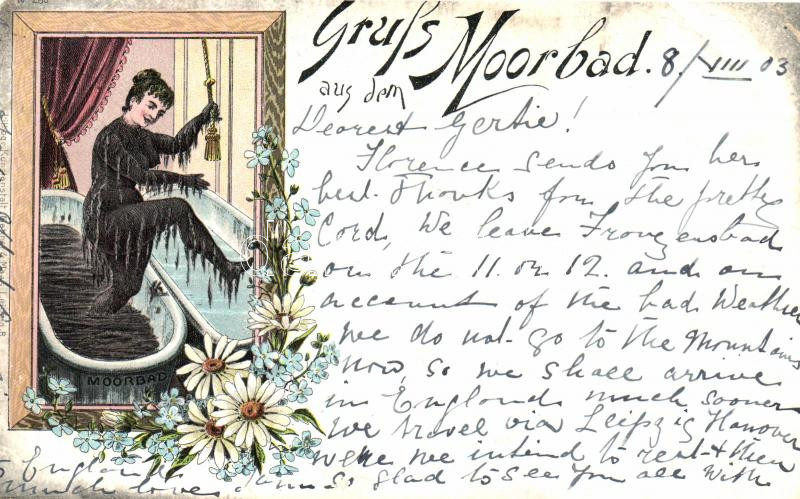 Gruss
aus dem
Moorbad.
8/VIII 03
Dearest Gertie!
Florence sends you her
best thanks for the pretty
Cord, We leave Franzensbad
on the 11. or 12. and on
account of the bad Weather
we do not go to the Mountains
now, so we shall arrive
in England much sooner
we travel via Leipzig Hanover
were we intend to rest & then
to England
so glad to see you all with
much love
MOORBAD